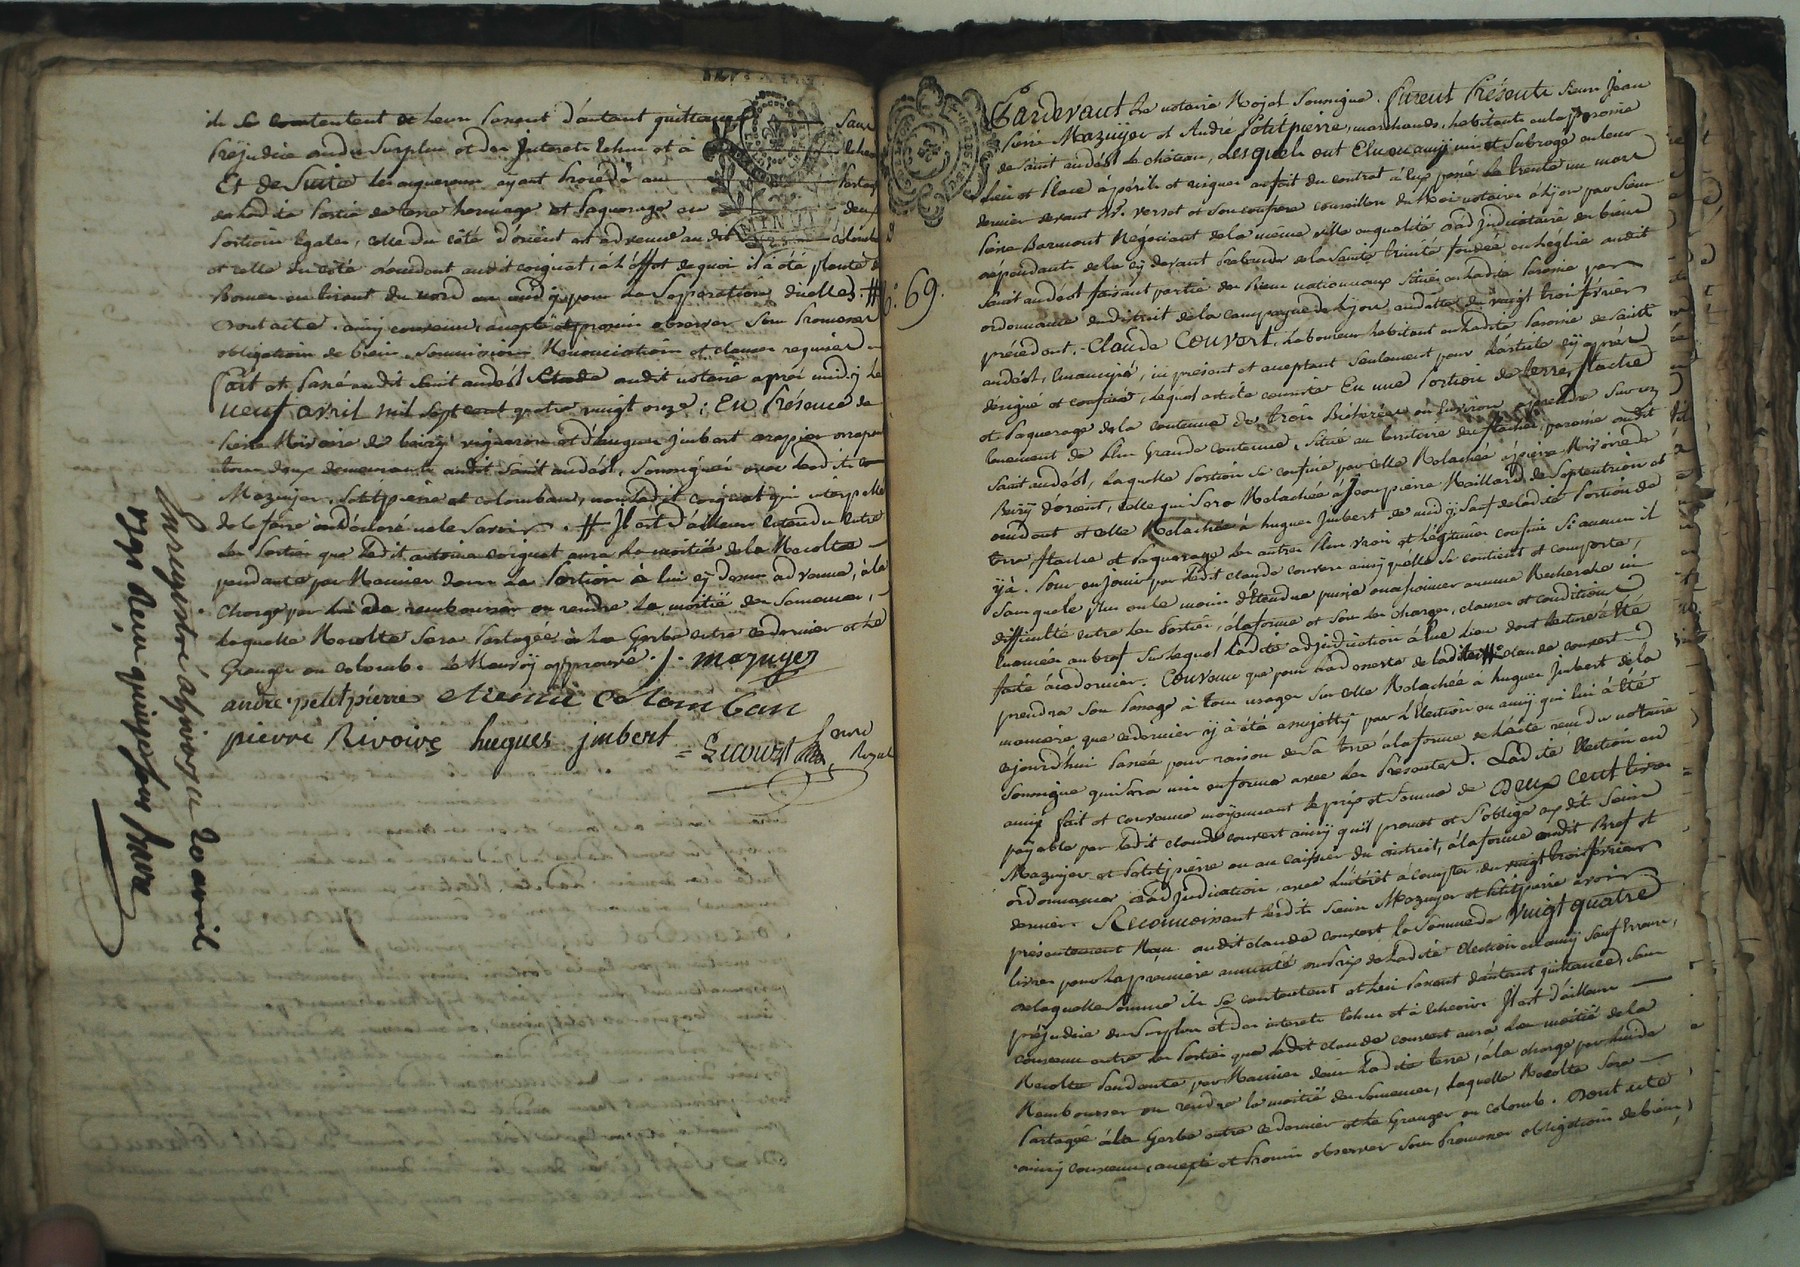 ils se contentent et leur passent d'autant quittance sauf
préjudice aud. Surplus et des jnterets echus et à echeoir
Et de Suitte les acquereurs ayant procedé au partage
de lad. ite portie de terre hermage et paquerage en deux
portions Egales, celle du côté d'orient est advenue audit colomban
et celle du côté d'occident audit coignat, à l'effet de quoi il a été planté des
Bornes en tirant du nord au midy pour la Separation d'icelles. #
Dont acte. ainsy convenu, accepté et promis observer Sous promesses
obligations de biens, Soumissions Renonciations et clauses requises
fait et passé audit Saint andéol Etude audit notaire après midy le
neuf avril mil sept cent quatre vingt onze; En présence de
pierre Rivoire de vigneron et d'hugues jmbert
tous deux demeurants audit Saint andéol, Soussignés avec lesdits
Mazuyer, petitpierre et colomban, non ledit coignat qui interpellé
de le faire a déclaré ne le Savoir. # Jl est d'ailleurs Entendu Entre
les parties que ledit antoine coignat aura la moitié de la Recolte
pendante par Racines dans la portion à lui cy dessus advenue, à la
charge par lui de rembourser ou rendre la moitié des Semences,
laquelle Recolte sera partagée à la Gerbe entre ce dernier et le
Granger ou colomb. le Renvoy approuvé. J. mazuyer
andré petitpierre etienne colomban
pierre Rivoire hugues jmbert
nore Royal
Enregistré à givors ce 20 avril
1791 Reçu quinze sous
n.° 69.
Pardevant Le notaire Royal Soussigné. furent Présents Sieurs Jean
pierre Mazuyer et André Petitpierre, marchands, habitants en la paroisse
de Saint andéol le château, Lesquels ont Elu en amy mis et Subrogé en leur
Lieu et Place à périls et risques au fait du contrat à eux passé le trente un mars
dernier devant M.e verset et Son confrere conseillers du Roi notaires à Lyon par Sieur
pierre Barmont Negociant de la même ville en qualité d'adjudicataire des biens
dependants de la cy devant prebende de la Sainte trinité fondée en l'église audit
Saint andéol faisant partie des Biens nationnaux Situés en ladite Paroisse par
ordonnance du district de la campagne de Lyon en datte du vingt trois février
précédent. Claude Couvert, laboureur habitant en ladite Paroisse de Saint
andéol, Emancipé, ici présent et acceptant Seulement pour l'article cy après
désigné et confiné, lequel article consiste En une Portion de terre, flache
et Paquerage de la contenue de trois Bicherées ou Environ à prendre Sur un
tenement de plus Grande contenue, Situé au territoire des flaches paroisse audit
Saint andéol, laquelle Portion se confine par celle Relachée à pierre Rivoire de
d'orient, celle qui Sera Relachée à Jean pierre Maillard de Septentrion et
occident et celle Relachée à hugues Jmbert de midy Sauf de ladite portion de
terre flache et paquerage les autres plus vrais et légitimes confins Si aucuns il
y a. Pour en jouir par ledit claude couvert ainsy quelle Se contient et comporte,
Sans que le plus ou le moins d'Etendue puisse occasionner aucune Recherche ni
difficulté entre les parties, à la forme et Sous les charges, clauses et conditions
Enoncées au bref Sur lequel ladite adjudication à Eue lieu dont lecture à Eté
faite à ce dernier. Convenu que pour la desserte de ladite claude couvert
prendra Son Passage à tous usages Sur celle Relachée à hugues Jmbert de la
maniere que ce dernier y à été assujetty par l'Election en amy qui lui à Eté
cejourd'hui Passée pour raison de Sa terre à la forme de l'acte reçu du notaire
Soussigné qui Sera mis en forme avec les Présentes. Ladite Election en
amy fait et convenue moyennant le prix et Somme de deux cent livres
payable par ledit claude couvert ainsy qu'il promet et S'oblige aux dits Sieurs
Mazuyer et petitpierre ou au caissier du district, à la forme audit Bref et
ordonnance d'adjudication, avec l'intérêt à compter du vingt trois février
dernier. Reconnoissant lesdits Sieurs Mazuyer et petitpierre avoir
présentement Reçu audit claude couvert la Somme de vingt quatre
livres pour la premiere annuité ou prix de ladite Election en amy Sauf Erreur,
de laquelle Somme ils Se contentent et lui passent d'autant quittance, Sans
préjudice du Surplus et des interets Echus et à Echeoir. Jl est d'ailleurs
convenu entre les parties que ledit claude couvert aura la moitié de la
Recolte Pendante par Racines dans ladite terre, à la charge par lui de
Rembourser ou rendre la moitié des Semences, laquelle Recolte Sera
Partagée à la Gerbe entre ce dernier et le Granger ou colomb. Dont acte
ainsy convenu, accepté et promis observer Sous Promesses obligations de biens,